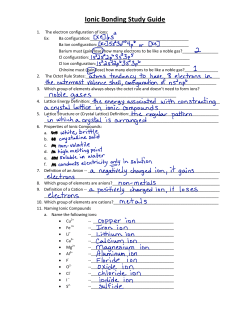 Ionic Bonding Study Guide
1. The electron configuration of ions:
Ex: Ba configuration: [Xe]6s²
Ba ion configuration: [Kr]5s²4d¹⁰5p⁶ or [Xe]
Barium must (gain/lose) how many electrons to be like a noble gas? 2
Cl configuration: 1s²2s²2p⁶3s²3p⁵
Cl ion configuration: 1s²2s²2p⁶3s²3p⁶
Chlorine must (gain/lose) how many electrons to be like a noble gas? 1
2. The Octet Rule States: atoms tendency to have 8 electrons in
the outermost valence shell, configuration of ns²np⁶
3. Which group of elements always obeys the octet rule and doesn't need to form ions?
noble gases
4. Lattice Energy Definition: the energy associated with constructing
a crystal lattice in ionic compounds
5. Lattice Structure or (Crystal Lattice) Definition: the regular pattern
in which a crystal is arranged
6. Properties of Ionic Compounds:
white, brittle
crystalline solid
non-volatile
high melting point
soluble in water
conducts electricity only in solution
7. Definition of an Anion – a negatively charged ion, it gains
electrons
8. Which group of elements are anions? non-metals
9. Definition of a Cation – a positively charged ion, it loses
electrons
10. Which group of elements are cations? metals
11. Naming Ionic Compounds
a. Name the following ions:
copper ion
Iron ion
Li⁺ – Lithium ion
Calcium ion
Magnesium ion
Aluminum ion
Floride ion
oxide ion
chloride ion
iodide ion
sulfide